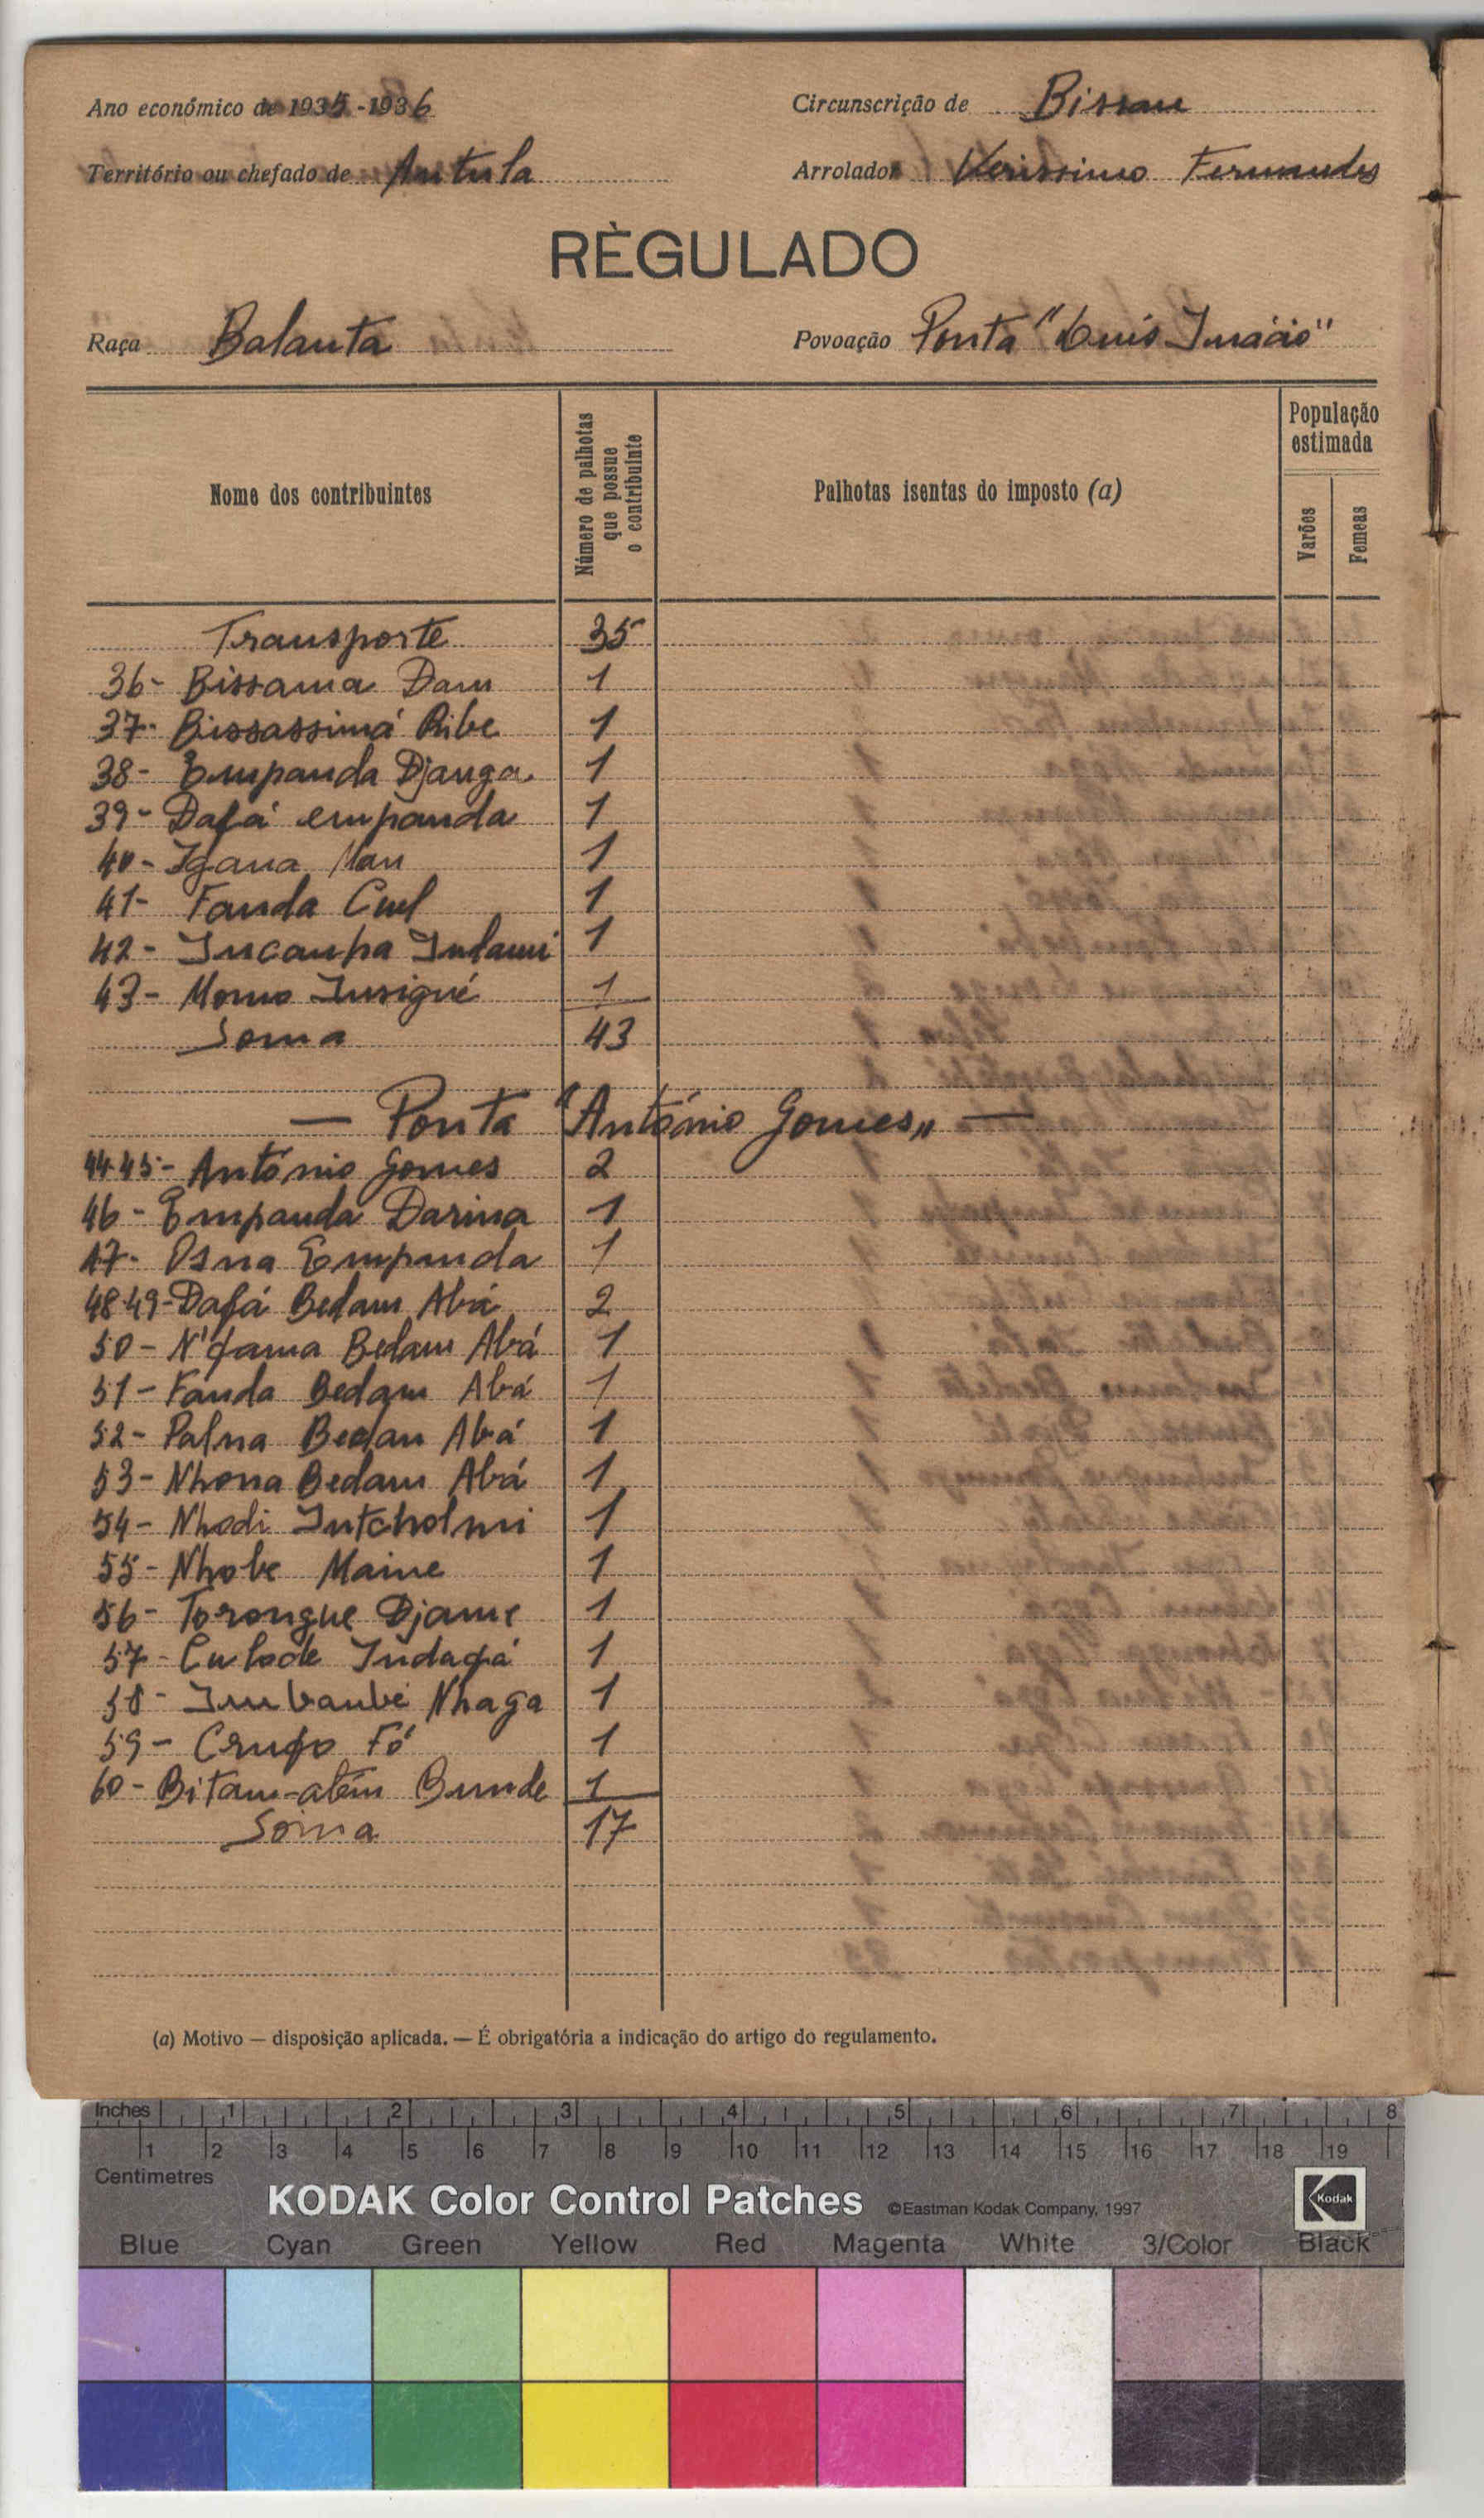 Ano económico de 1935-1936 Circunscrição de Bissau
Território ou chefado de Antula Arrolador Verissimo Fernandes
RÈGULADO
Raça Balanta Povoação Ponta "Luis Inácio"
Nome dos contribuintes
Número de palhotas que possue o contribuinte
Palhotas isentas do imposto (a)
População estimada
Varões
Femeas
Transporte 35
36- Bissama Dam 1
37- Bissassimá Ribe 1
38- Empanda Djanga 1
39- Dafá empanda 1
40- Igana Nan 1
41- Fanda Cul 1
42- Incanha Indami 1
43- Momo Insigué 1
Soma 43
— Ponta "António Gomes" —
44-45- António Gomes 2
46- Empanda Darina 1
47- Osna Empanda 1
48-49- Dafá Bedam Abá 2
50- N'dama Bedam Abá 1
51- Fanda Bedam Abá 1
52- Palna Bedan Abá 1
53- Nhona Bedam Abá 1
54- Nhodi Intcholmi 1
55- Nhobe Maine 1
56- Torongue Djame 1
57- Culode Indafá 1
58- Imbambé Nhaga 1
59- Crufo Fó 1
60- Bitam-além Bunde 1
Soma 17
(a) Motivo — disposição aplicada. — É obrigatória a indicação do artigo do regulamento.
Inches 1 2 3 4 5 6 7 8
1 2 3 4 5 6 7 8 9 10 11 12 13 14 15 16 17 18 19
Centimetres
KODAK Color Control Patches ©Eastman Kodak Company, 1997 Kodak
Blue Cyan Green Yellow Red Magenta White 3/Color Black